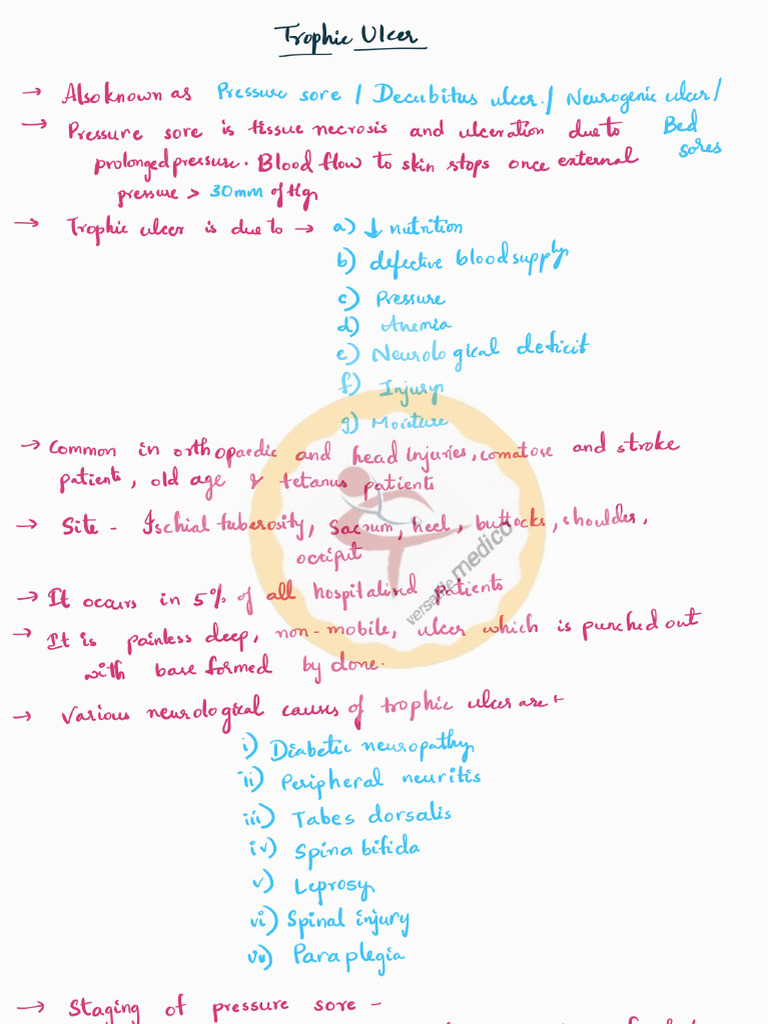 Trophic Ulcer
→ Also known as Pressure sore / Decubitus ulcer / Neurogenic ulcer / Bed sores
→ Pressure sore is tissue necrosis and ulceration due to
prolonged pressure. Blood flow to skin stops once external
pressure > 30mm of Hg
→ Trophic ulcer is due to → a) ↓ nutrition
b) defective blood supply
c) Pressure
d) Anemia
e) Neurological deficit
f) Injury
g) Moisture
→ Common in orthopaedic and head injuries, comatose and stroke
patients, old age & tetanus patients
→ Site - Ischial tuberosity, sacrum, heel, buttocks, shoulder,
occiput
→ It occurs in 5% of all hospitalised patients
→ It is painless deep, non-mobile, ulcer which is punched out
with base formed by done.
→ Various neurological causes of trophic ulcer are
i) Diabetic neuropathy
ii) Peripheral neuritis
iii) Tabes dorsalis
iv) Spina bifida
v) Leprosy
vi) Spinal injury
vii) Paraplegia
→ Staging of pressure sore -
versatile medico